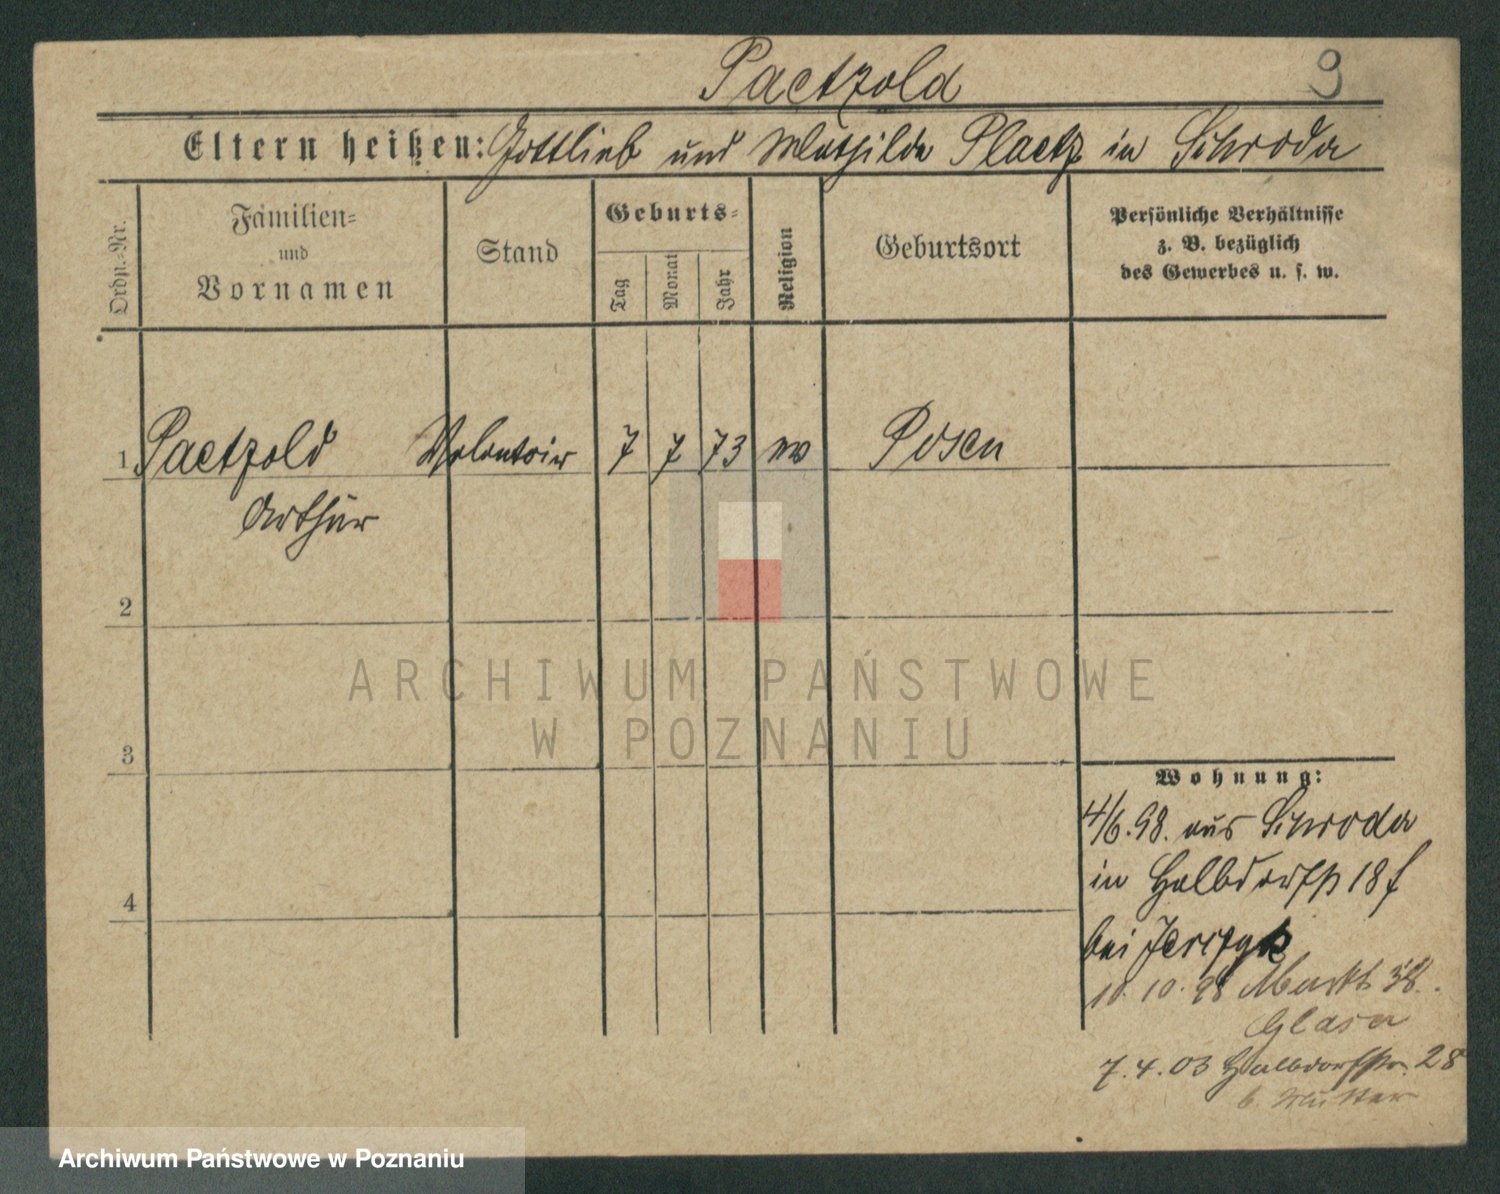 Paetzold 9
Eltern heißen: Gottlieb und Mathilde Plaetz in Schroda
Ordn.-Nr.
Familien-
und
Vornamen
Stand
Geburts-
Tag
Monat
Jahr
Religion
Geburtsort
Persönliche Verhältnisse
z. B. bezüglich
des Gewerbes u. s. w.
1 Paetzold Volontair 7 7 73 ev Posen
Arthur
2
3
4
ARCHIWUM PAŃSTWOWE
W POZNANIU
Wohnung:
4/6.98. aus Schroda
in Halbdorfstr 18 f
bei
10.10.98 Markt
Glaser
7.4.03 Halbdorfstr. 28
b. Mutter
Archiwum Państwowe w Poznaniu